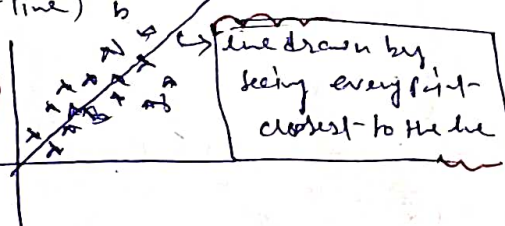 line) b
line drawn by
seeing every point
closest to the line